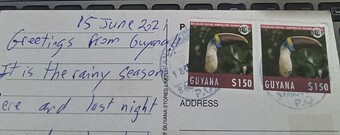 15 June 202
Greetings from Guyana!!
It is the rainy season
ere and last night
P
GUYANA $150
GUYANA $150
ADDRESS
GUYANA STORE LIMITED